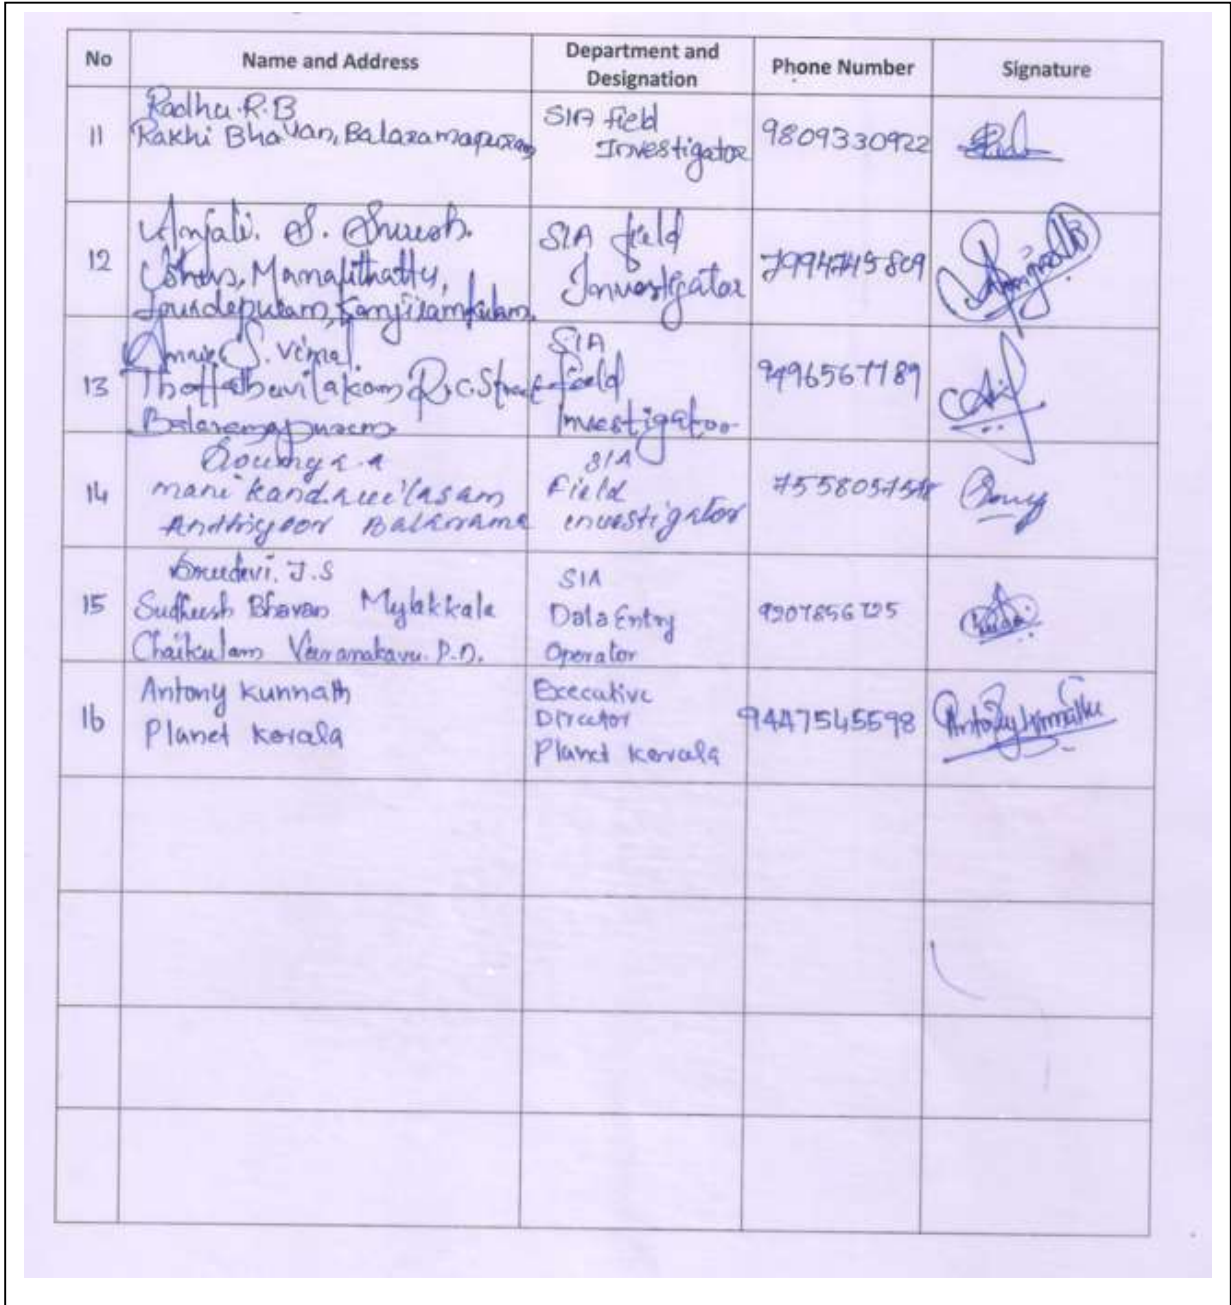 No Name and Address Department and Designation Phone Number Signature
11
Radhu.R.B
Rakhi Bhavan, Balaramapuram
SIA field
Investigator
9809330922
12
Anjali. S. Suresh.
Mamalithatty,
Lourdepuram, Kanjiramkulam.
SIA field
Investigator
7994745809
13
S. Vimal
Thottathuvilakom R.C. Street
Balaramapuram
SIA
Field
Investigator
9496567789
14
Soumya.a
manikandavilasam
Andhiyoor Balarama
SIA
Field
investigator
15
Sreedevi. J.S
Sudheesh Bhavan Mylakkale
Chaikulam Veeranakavu. P.O.
SIA
Data Entry
Operator
9207856725
16
Antony Kunnath
Planet Kerala
Executive
Director
Planet Kerala
9447545598
Antony Kunnathu